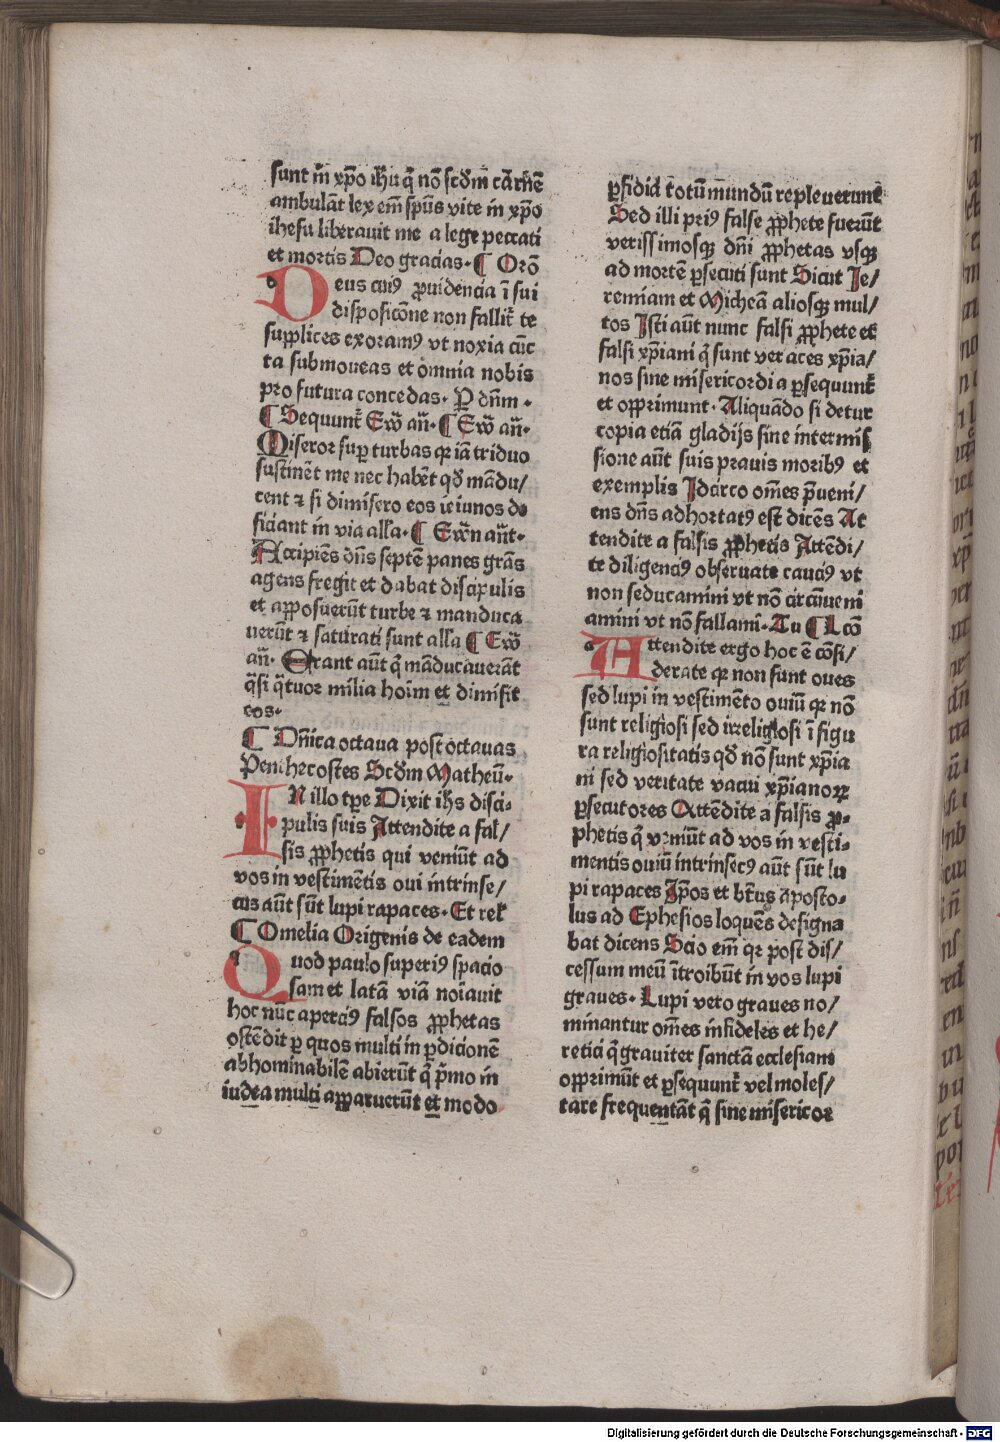 sunt in xp̄o ih̄u q̄ nō scd̄m carnē
ambulāt lex em̄ sp̄us vite in xp̄o
ihesu liberauit me a lege peccati
et mortis Deo gracias· ¶ Orō
Deus cui⁹ ꝓuidencia ī sui
disposicōne non fallit̄ te
supplices exoram⁹ vt noxia cūc
ta submoueas et omnia nobis
pro futura concedas· Ꝑ dn̄m·
¶ Sequunt̄ Ew̄ an̄· ¶ Ew̄ an̄·
Miseror sup̄ turbas qꝛ iā triduo
sustinēt me nec habēt qd̄ mādu/
cent ⁊ si dimisero eos ieiunos de
ficiant in via alla· ¶ Ew̄n ant̄·
Accipiēs dn̄s septē panes grās
agens fregit et dabat discipulis
et apposuerūt turbe ⁊ manduca
uerūt ⁊ saturati sunt alla ¶ Ew̄
an̄· Erant aūt q̄ māducauerāt
q̄si q̄tuor milia hoīm et dimisit
eos·
¶ Dn̄ica octaua post octauas
Penthecostes Scd̄m Matheū·
IN illo tp̄e Dixit ih̄s disci-
pulis suis Attendite a fal/
sis ꝓphetis qui veniūt ad
vos in vestimētis oui intrinse/
cus aūt sūt lupi rapaces· Et rel̄
¶ Omelia Origenis de eadem
Quod paulo superi⁹ spacio
sam et latā viā noīauit
hoc nūc aperci⁹ falsos ꝓphetas
ostēdit ꝑ quos multi in ꝑdicionē
abhominabilē abierūt q̄ p̄mo in
iudea multi apparuerūt et modo
ꝑfidiā totū mundū repleuerunt
Sed illi pri⁹ false ꝓphete fuerūt
verissimosqꝫ dn̄i ꝓphetas vsqꝫ
ad mortē ꝑsecuti sunt Sicut Je/
remiam et Micheā aliosqꝫ mul/
tos Isti aūt nunc falsi ꝓphete et
falsi xp̄iani q̄ sunt veraces xp̄ia/
nos sine misericordia ꝑsequunt̄
et opprimunt· Aliquādo si detur
copia etiā gladijs sine intermis
sione aūt suis prauis morib⁹ et
exemplis Idcirco om̄es p̄ueni/
ens dn̄s adhortat⁹ est dicēs At
tendite a falsis ꝓphetis Attēdi/
te diligenci⁹ obseruate cauci⁹ vt
non seducamini vt nō circūueni
amini vt nō fallami· Tu ¶ Lcō
Attendite ergo hoc ē cōsi/
derate qꝛ non sunt oues
sed lupi in vestimēto ouiū qꝛ nō
sunt religiosi sed irreligiosi ī figu
ra religiositatis qd̄ nō sunt xp̄ia
ni sed veritate vacui xp̄ianoꝝ
ꝑsecutores Attēdite a falsis ꝓ-
phetis q̄ veniūt ad vos in vesti-
mentis ouiū intrinsec⁹ aūt sūt lu
pi rapaces Ip̄os et bt̄us aposto-
lus ad Ephesios loquēs designa
bat dicens Scio em̄ qꝛ post dis/
cessum meū ītroibūt in vos lupi
graues· Lupi vero graues no/
minantur om̄es infideles et he/
retici q̄ grauiter sanctā ecclesiam
opprimūt et ꝑsequunt̄ vel moles/
tare frequentāt q̄ sine misericor
Digitalisierung gefördert durch die Deutsche Forschungsgemeinschaft - DFG